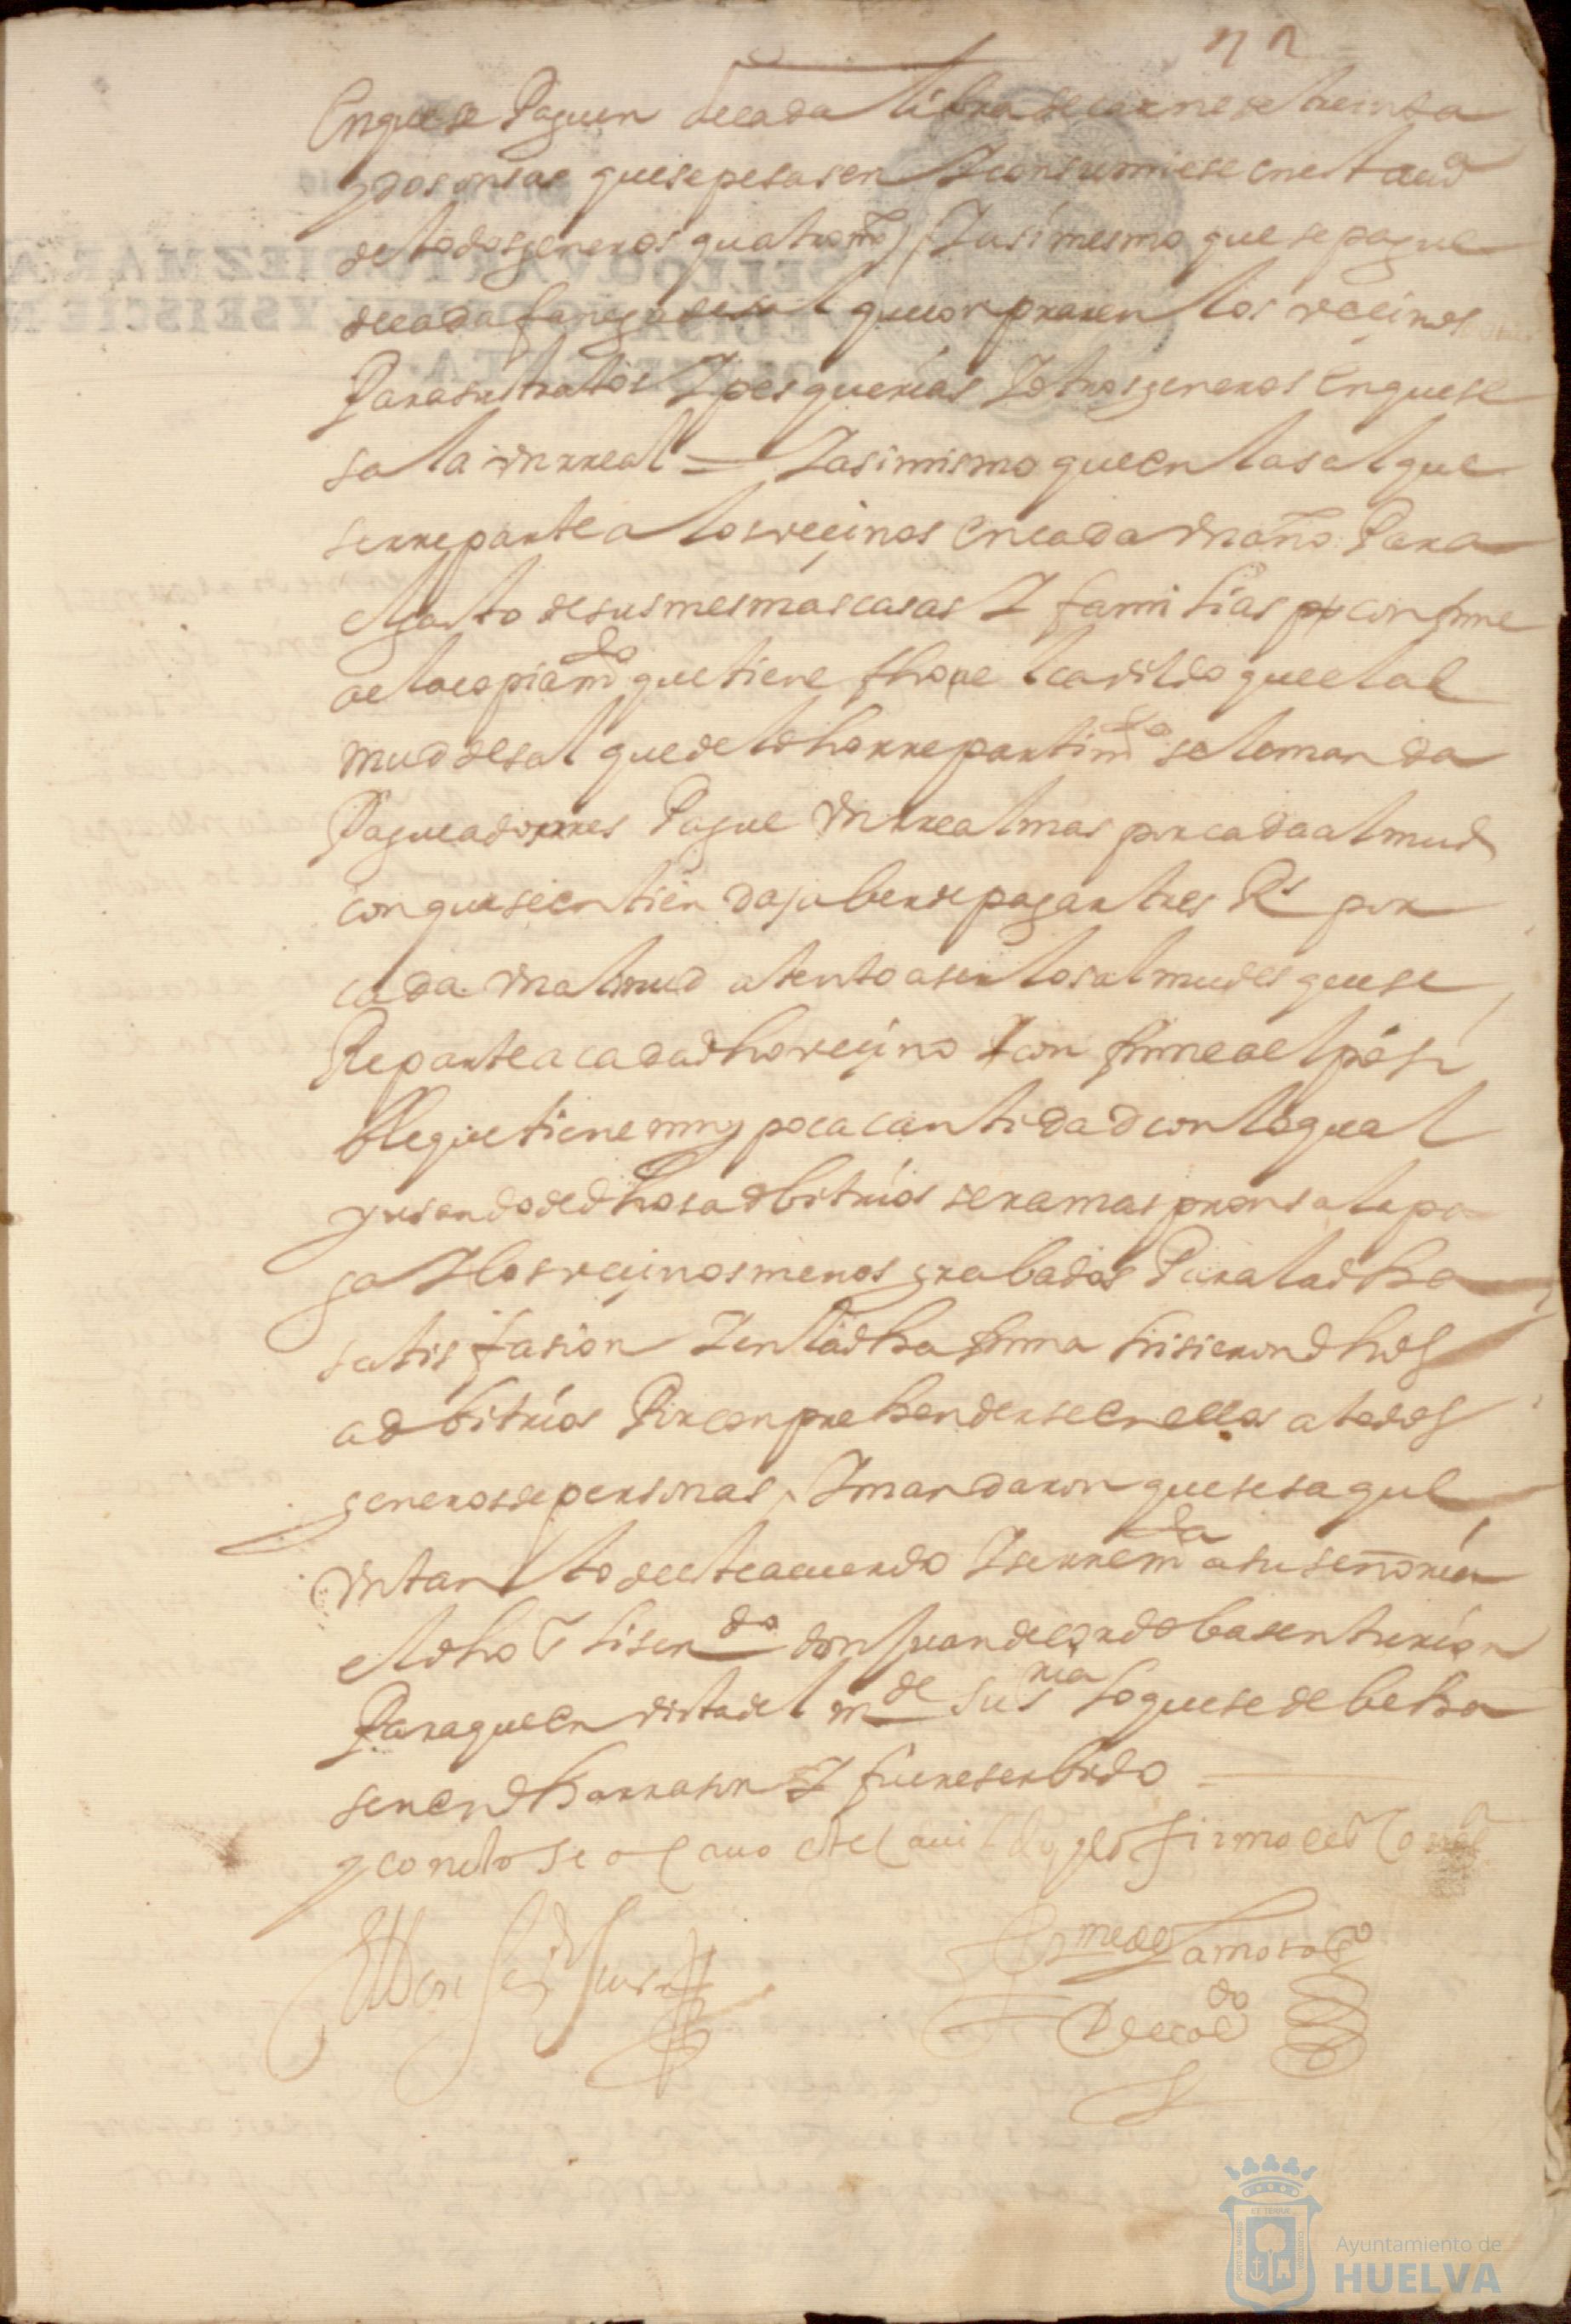 En que se Paguen de cada libra de carne de treinta
y dos onsas que se pesasen Y consumiese en esta
de todos generos quatro ms Y asi mesmo que se pague
de cada fanega de sal que conpraren los veçinos
Para sus tratos Y pesquerias Y otros generos En que se
sala un rreal = Y asi mismo que en la sal que
se rreparte a los veçinos En cada un año Para
el gasto de sus mesmas casas Y familias conforme
al acopiamto que tiene fho el cavildo que el al
mud de sal que del dho rrepartimto se le manda
Pague a dos rres Pague un rreal mas por cada almud
con que se entienda aber de pagar tres Rs por
cada un almud atento a ser los almudes que se
Reparte a cada dho veçino Y conforme a el posi
ble que tiene muy poca cantidad con lo qual
y usando de dhos adbitrios sera mas pronta la pa
ga Y los veçinos menos grabados Para la dha
satisfasion Y en la dha forma hisieron dhos
adbitrios Por conprehenderse en ellos a todos
generos de personas, Y mandaron que se saque
un tanto de este acuerdo Y se rremda a su señoria
el dho Sr lisendo don Juan de cordoba senturion
Para que en vista del mde Su sria lo que se debe ha
ser en dha rrason Y fuere serbido
y con esto se acavo este cavildo y lo firmo
do